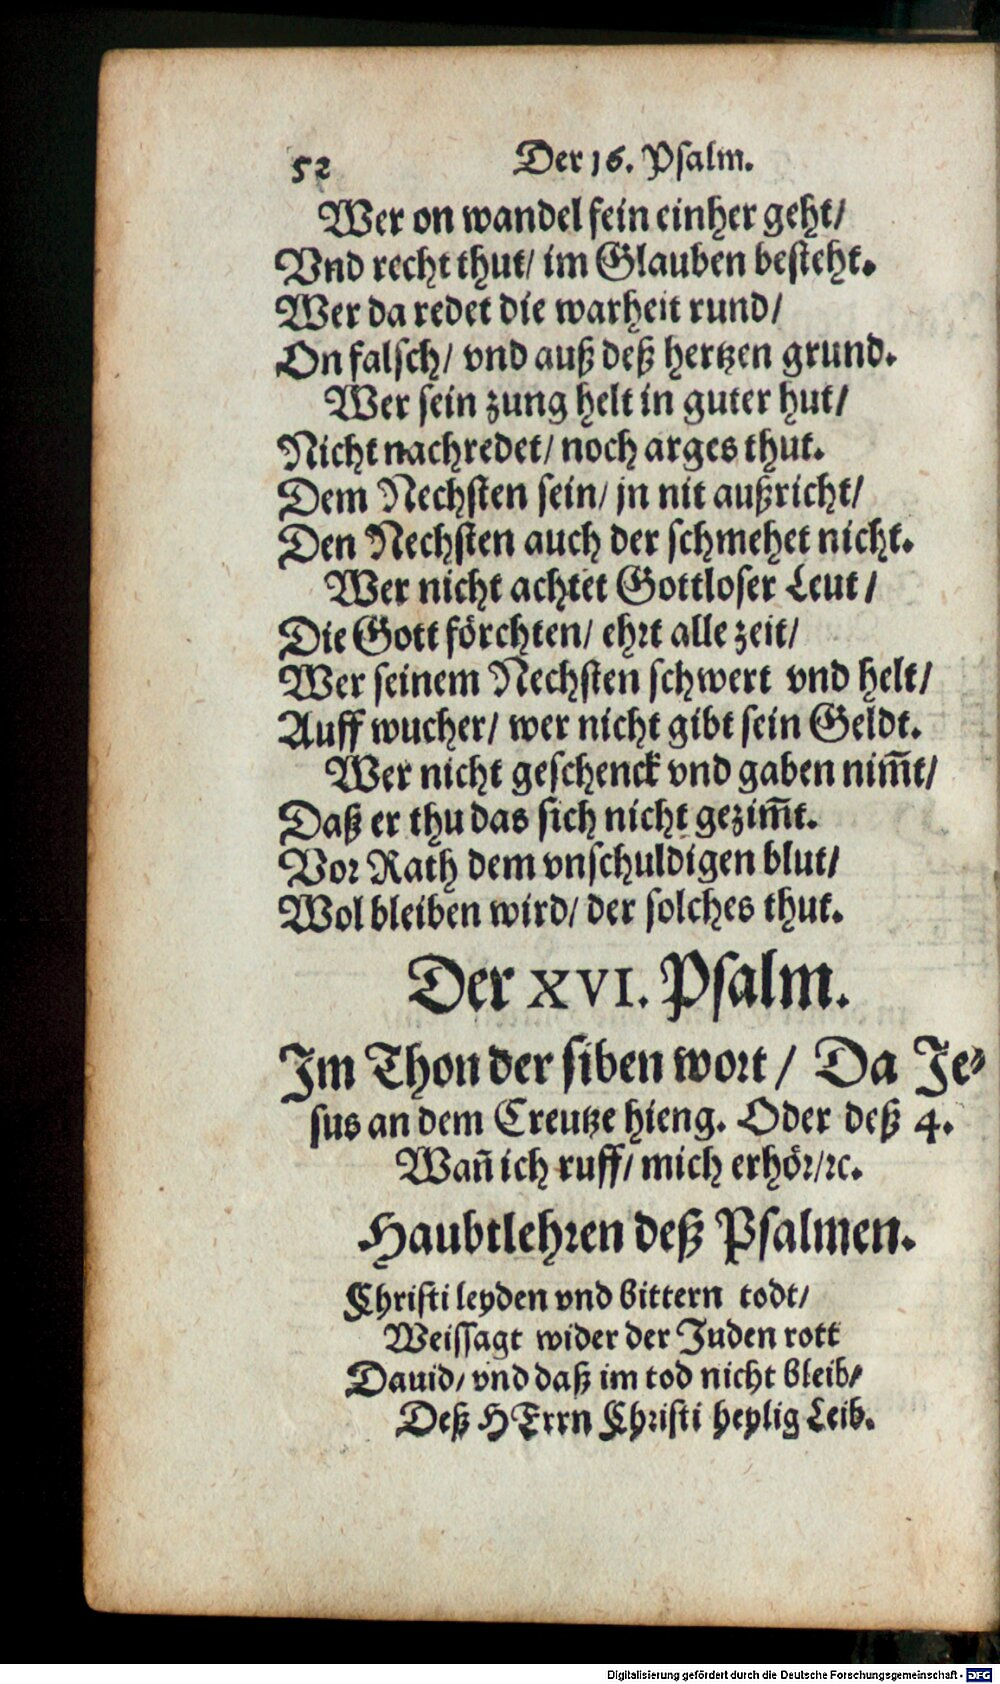 52 Der 16. Psalm.
Wer on wandel fein einher geht/
Vnd recht thut/ im Glauben besteht.
Wer da redet die warheit rund/
On falsch/ vnd auß deß hertzen grund.
Wer sein zung helt in guter hut/
Nicht nachredet/ noch arges thut.
Dem Nechsten sein/ jn nit außricht/
Den Nechsten auch der schmehet nicht.
Wer nicht achtet Gottloser Leut/
Die Gott förchten/ ehrt alle zeit/
Wer seinem Nechsten schwert vnd helt/
Auff wucher/ wer nicht gibt sein Geldt.
Wer nicht geschenck vnd gaben nim̄t/
Daß er thu das sich nicht gezim̄t.
Vor Rath dem vnschuldigen blut/
Wol bleiben wird/ der solches thut.
Der XVI. Psalm.
Im Thon der siben wort/ Da Je⸗
sus an dem Creutze hieng. Oder deß 4.
Wañ ich ruff/ mich erhör/ꝛc.
Haubtlehren deß Psalmen.
Christi leyden vnd bittern todt/
Weissagt wider der Juden rott
Dauid/ vnd daß im tod nicht bleib/
Deß HErrn Christi heylig Leib.
Digitalisierung gefördert durch die Deutsche Forschungsgemeinschaft - DFG